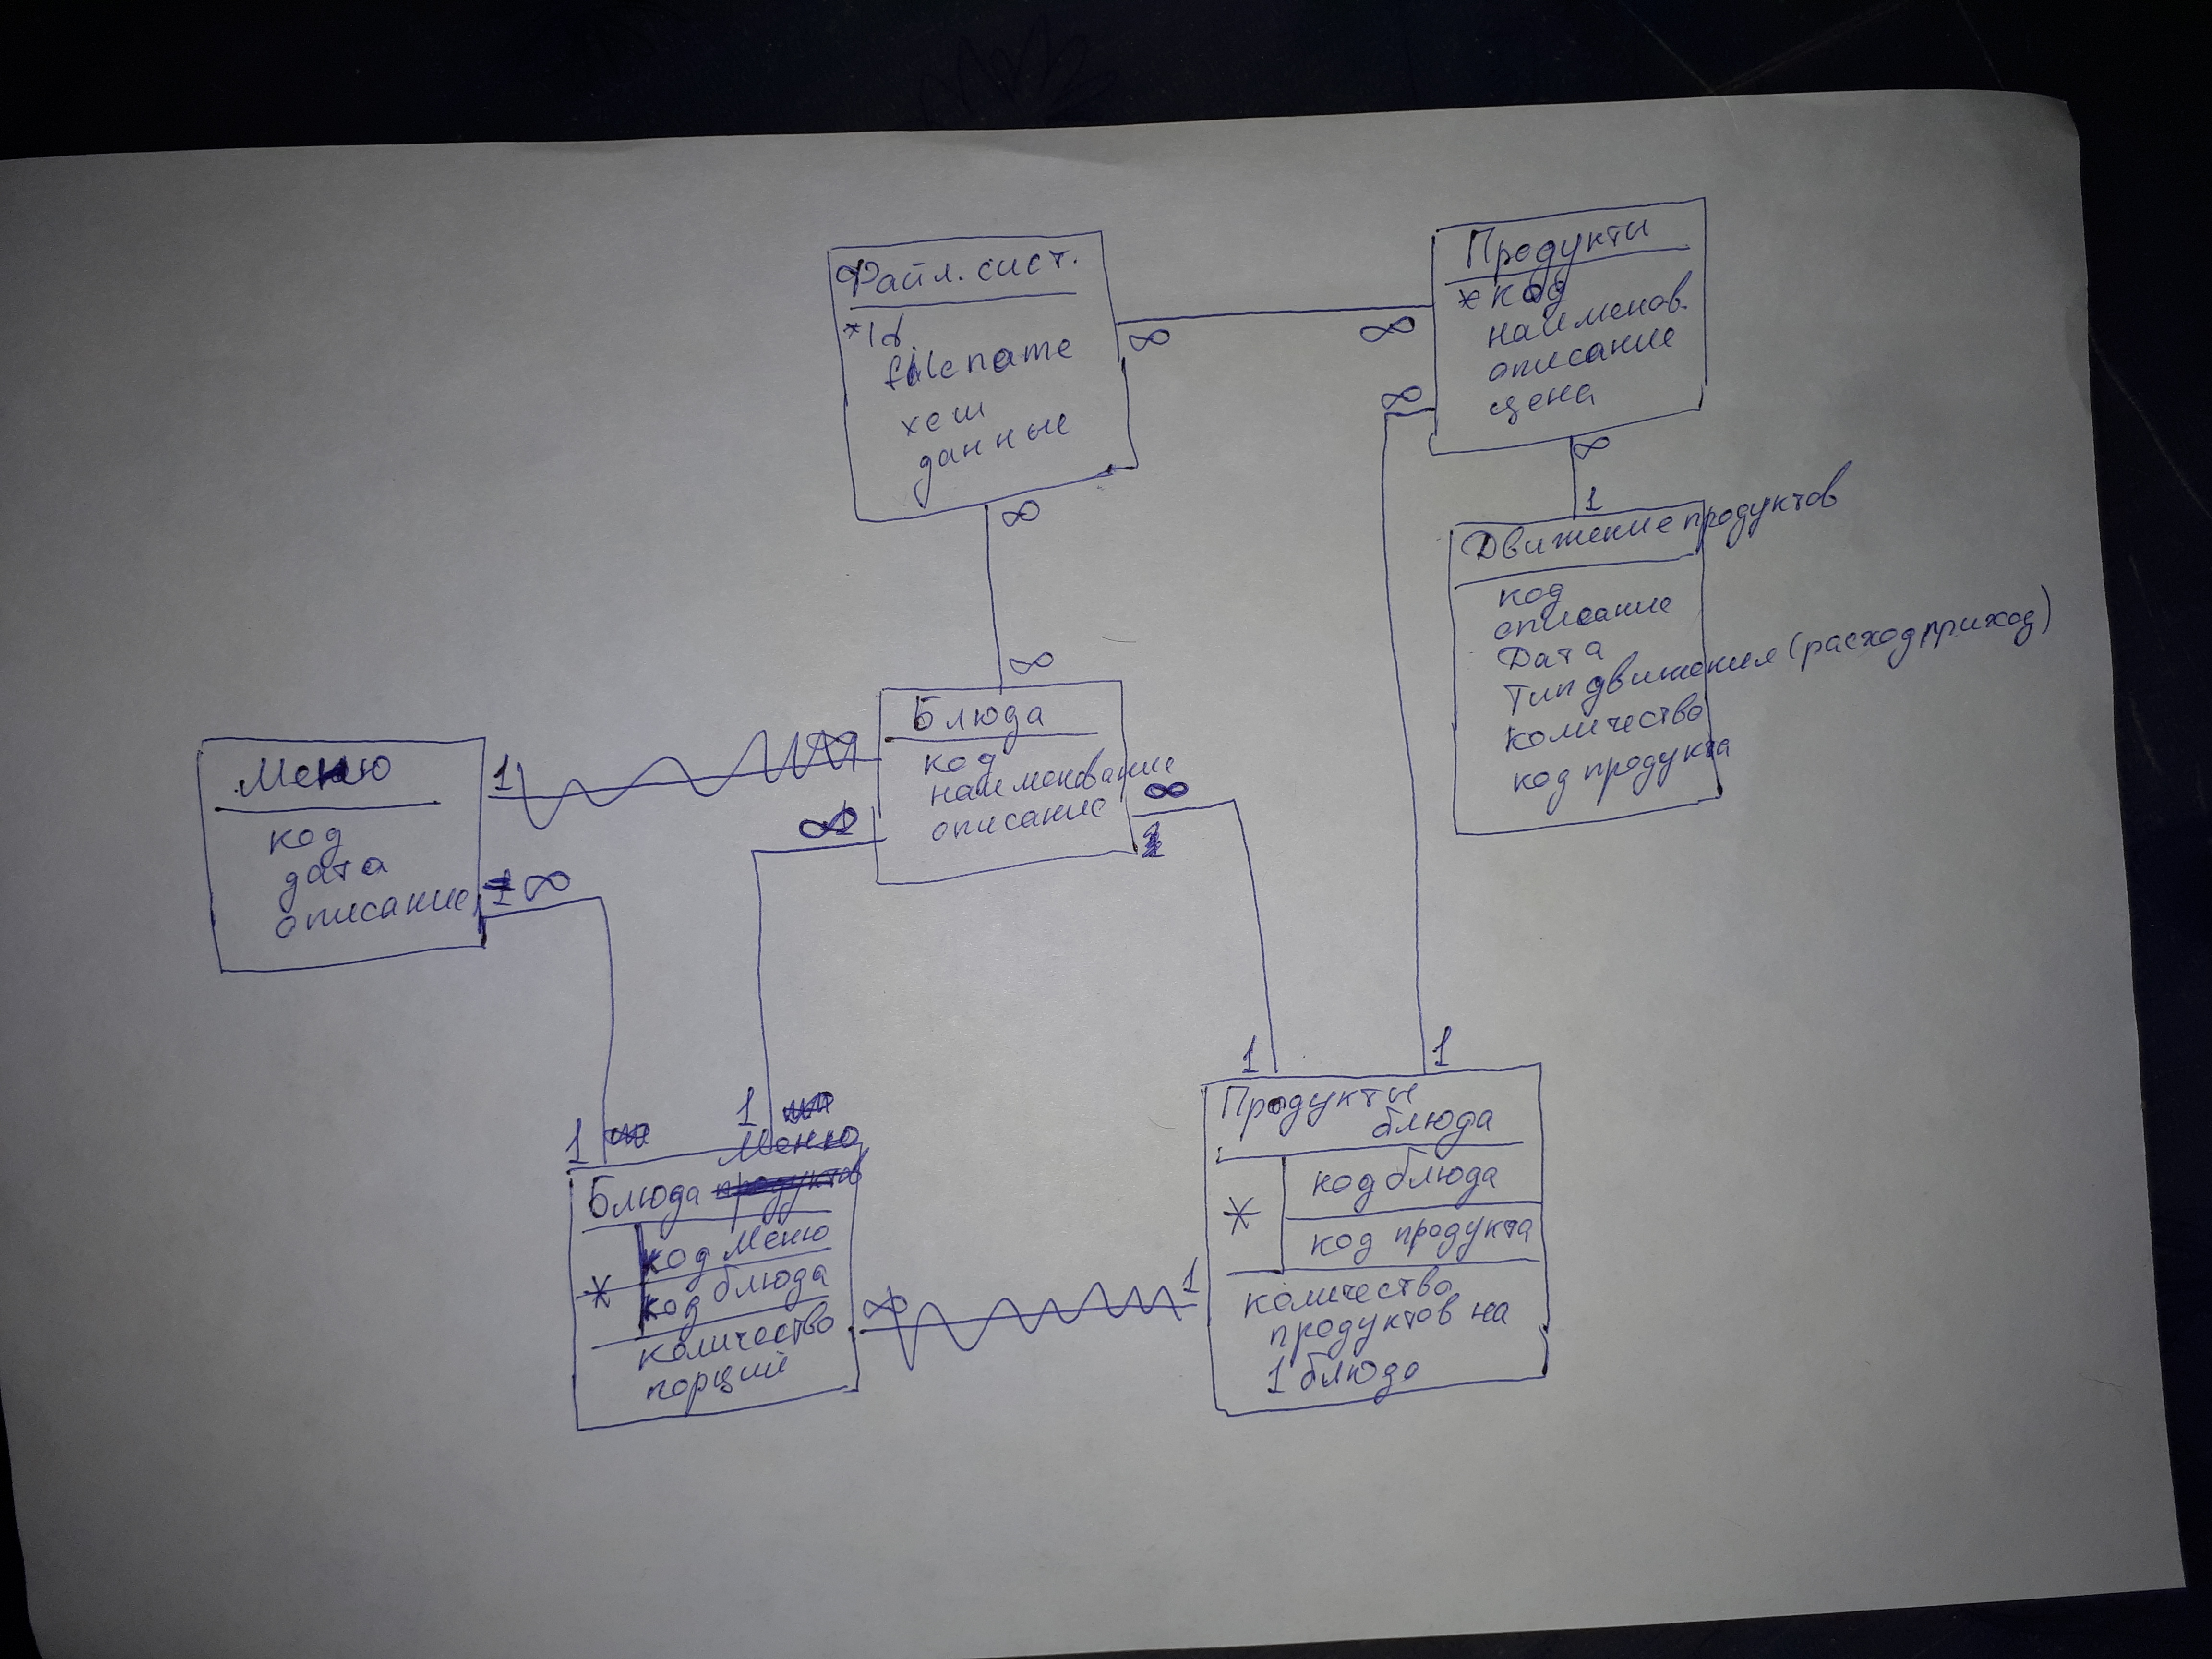 Файл. сист.
*Id
filename
хеш
данные
∞
∞
∞
∞
Продукты
*код
наименов.
описание
цена
∞
∞
1
Движение продуктов
код
описание
Дата
Тип движения (расход, приход)
количество
код продукта
Меню
код
дата
описание
1
∞
Блюда
код
наименование
описание
∞
∞
1
1
Меню
Блюда продуктов
* код Меню
код блюда
количество
порций
∞
1
1
1
Продукты
блюда
* код блюда
код продукта
количество
продуктов на
1 блюдо